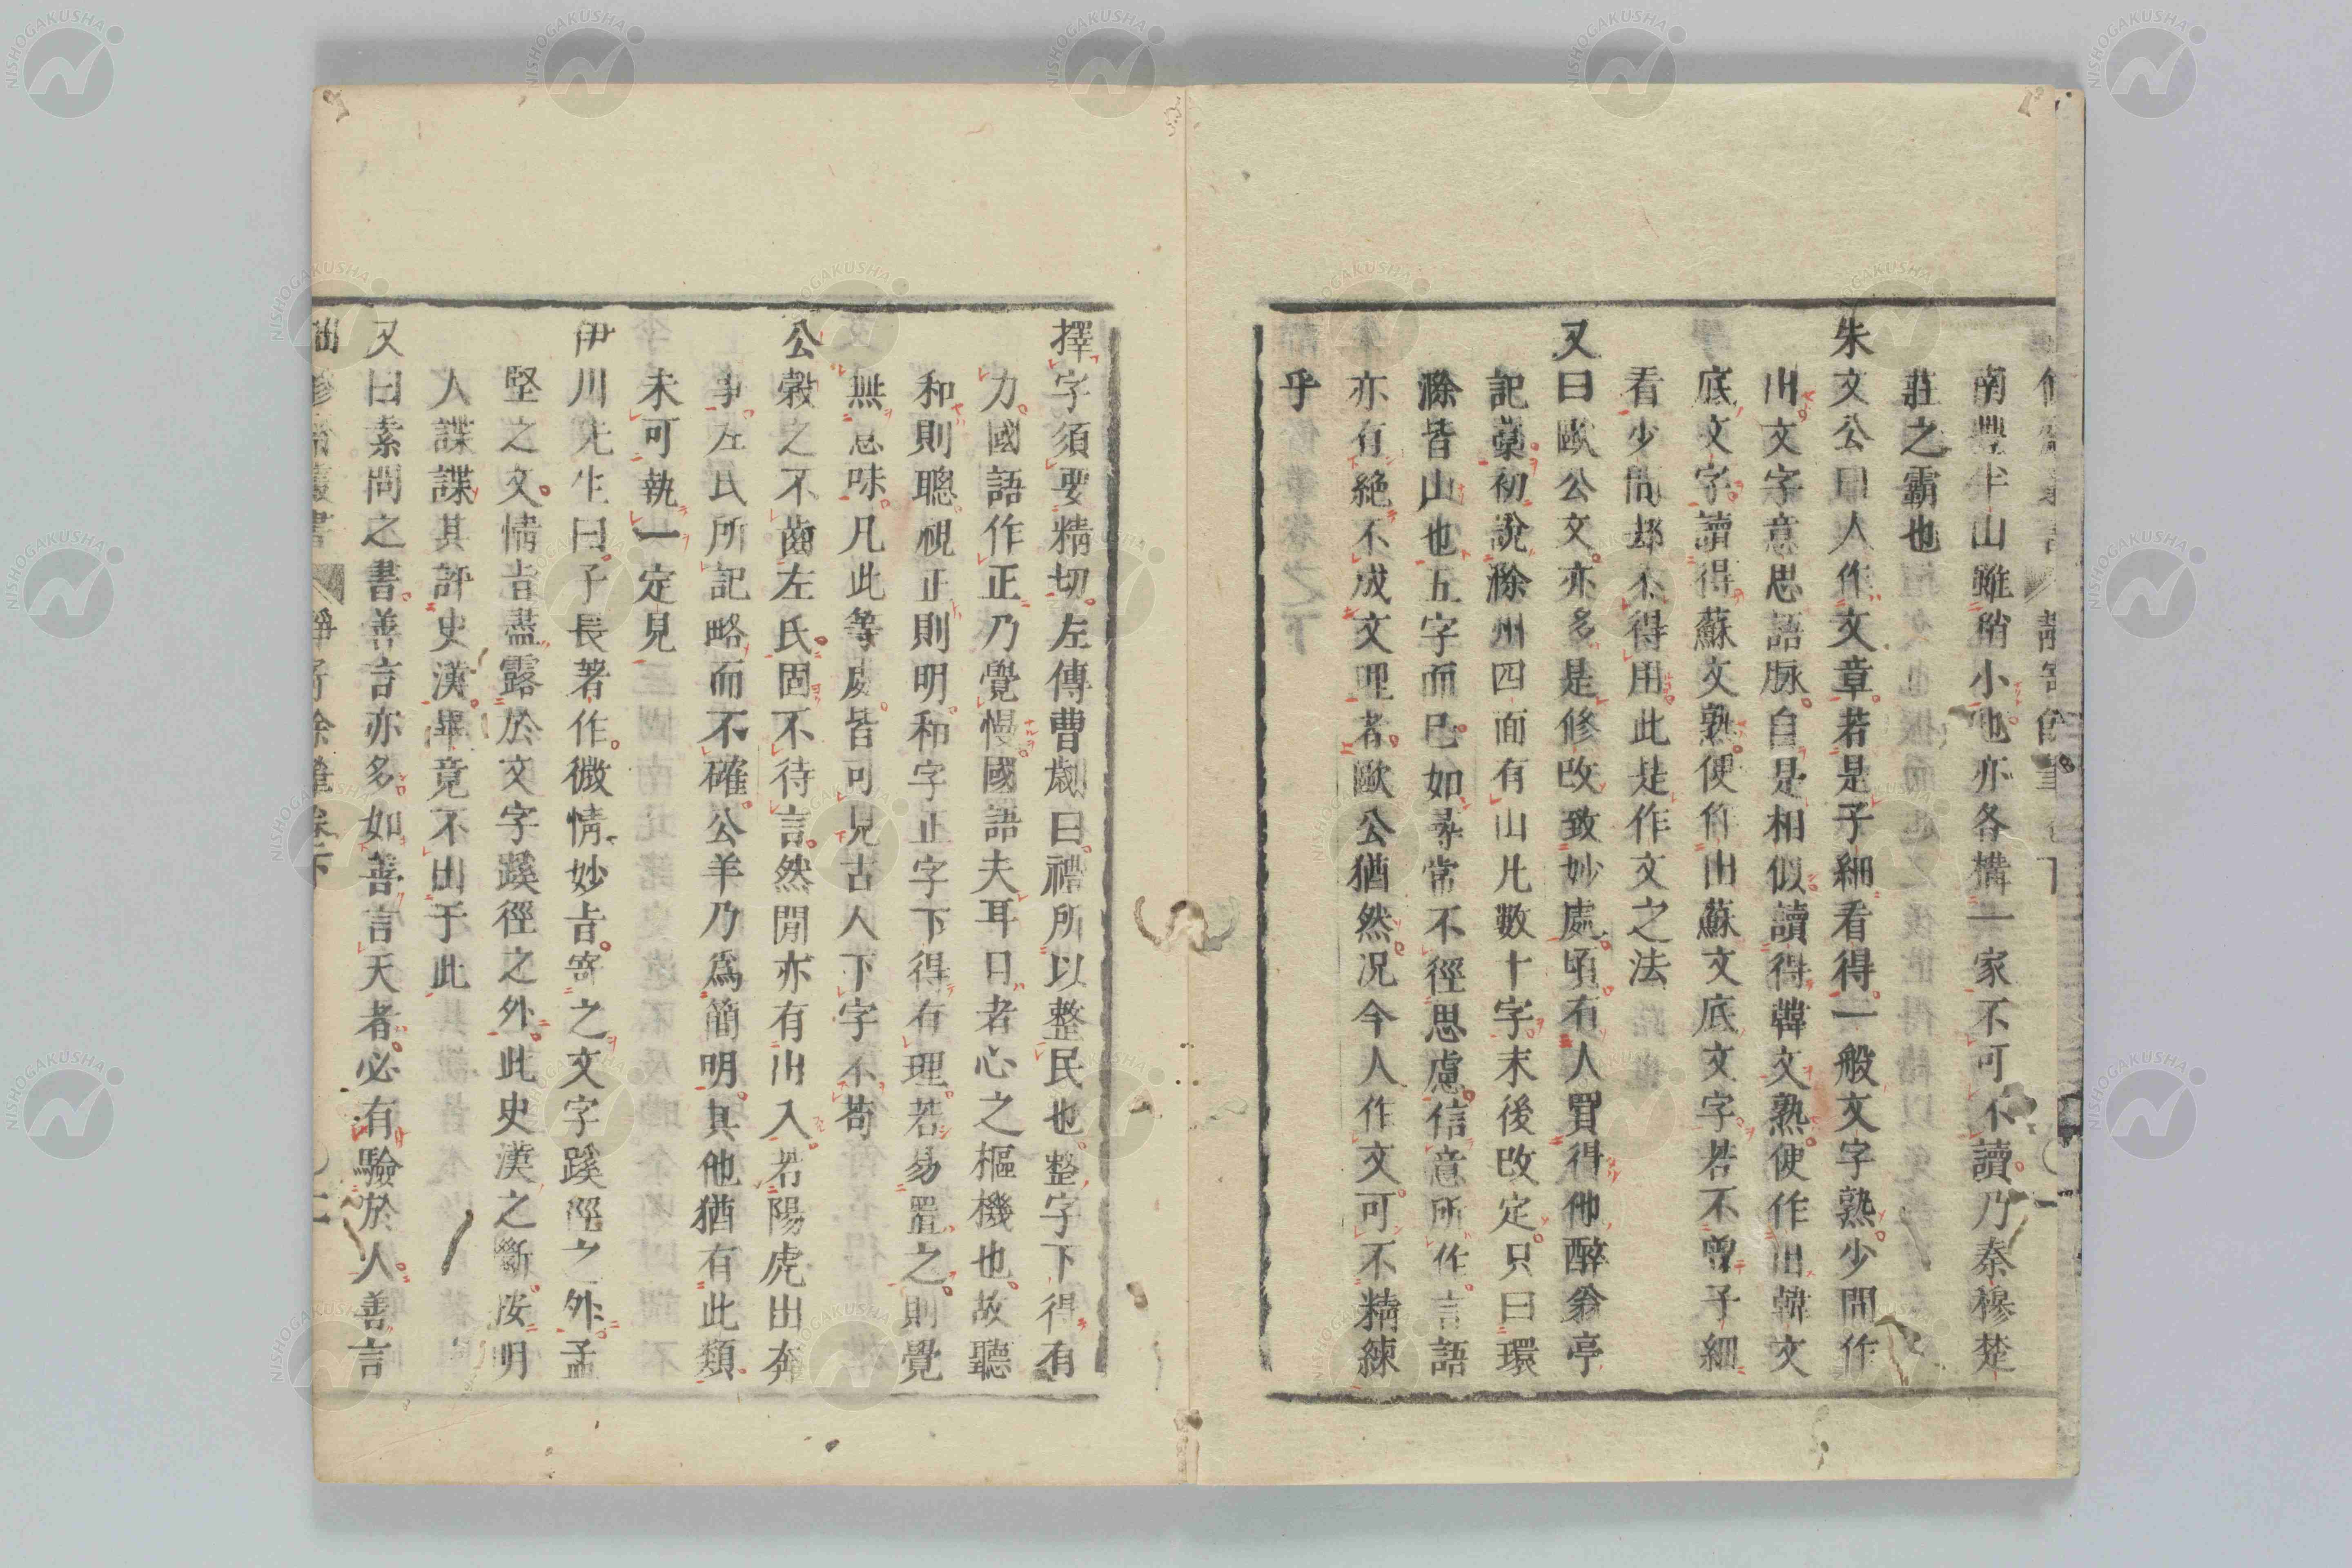 南豐半山雖稍小也亦各構一家不可不讀乃秦穆楚
莊之霸也
朱文公曰人作文章若是子細看得一般文字熟少間作
出文字意思語脉自是相似讀得韓文熟便作出韓文
底文字讀得蘇文熟便作出蘇文底文字若不曾子細
看少間却不得用此是作文之法
又曰歐公文亦多是修改致妙處頃有人買得他醉翁亭
記藁初說滁州四面有山凡數十字末後改定只曰環
滁皆山也五字而已如尋常不徑思慮信意所作言語
亦有絶不成文理者歐公猶然况今人作文可不精練
乎
擇字須要精切左傳曹劌曰禮所以整民也整字下得有
力國語作正乃覺慢國語夫耳目者心之樞機也故聽
和則聰視正則明和字正字下得有理若易置之則覺
無意味凡此等處皆可見古人下字不苟
公穀之不齒左氏固不待言然閒亦有出入若陽虎出奔
事左氏所記略而不確公羊乃爲簡明其他猶有此類
未可執一定見
伊川先生曰子長著作微情妙旨寄之文字蹊徑之外孟
堅之文情旨盡露於文字蹊徑之外此史漢之斷按明
人諜諜其評史漢畢竟不出于此
又曰素問之書善言亦多如善言天者必有驗於人善言